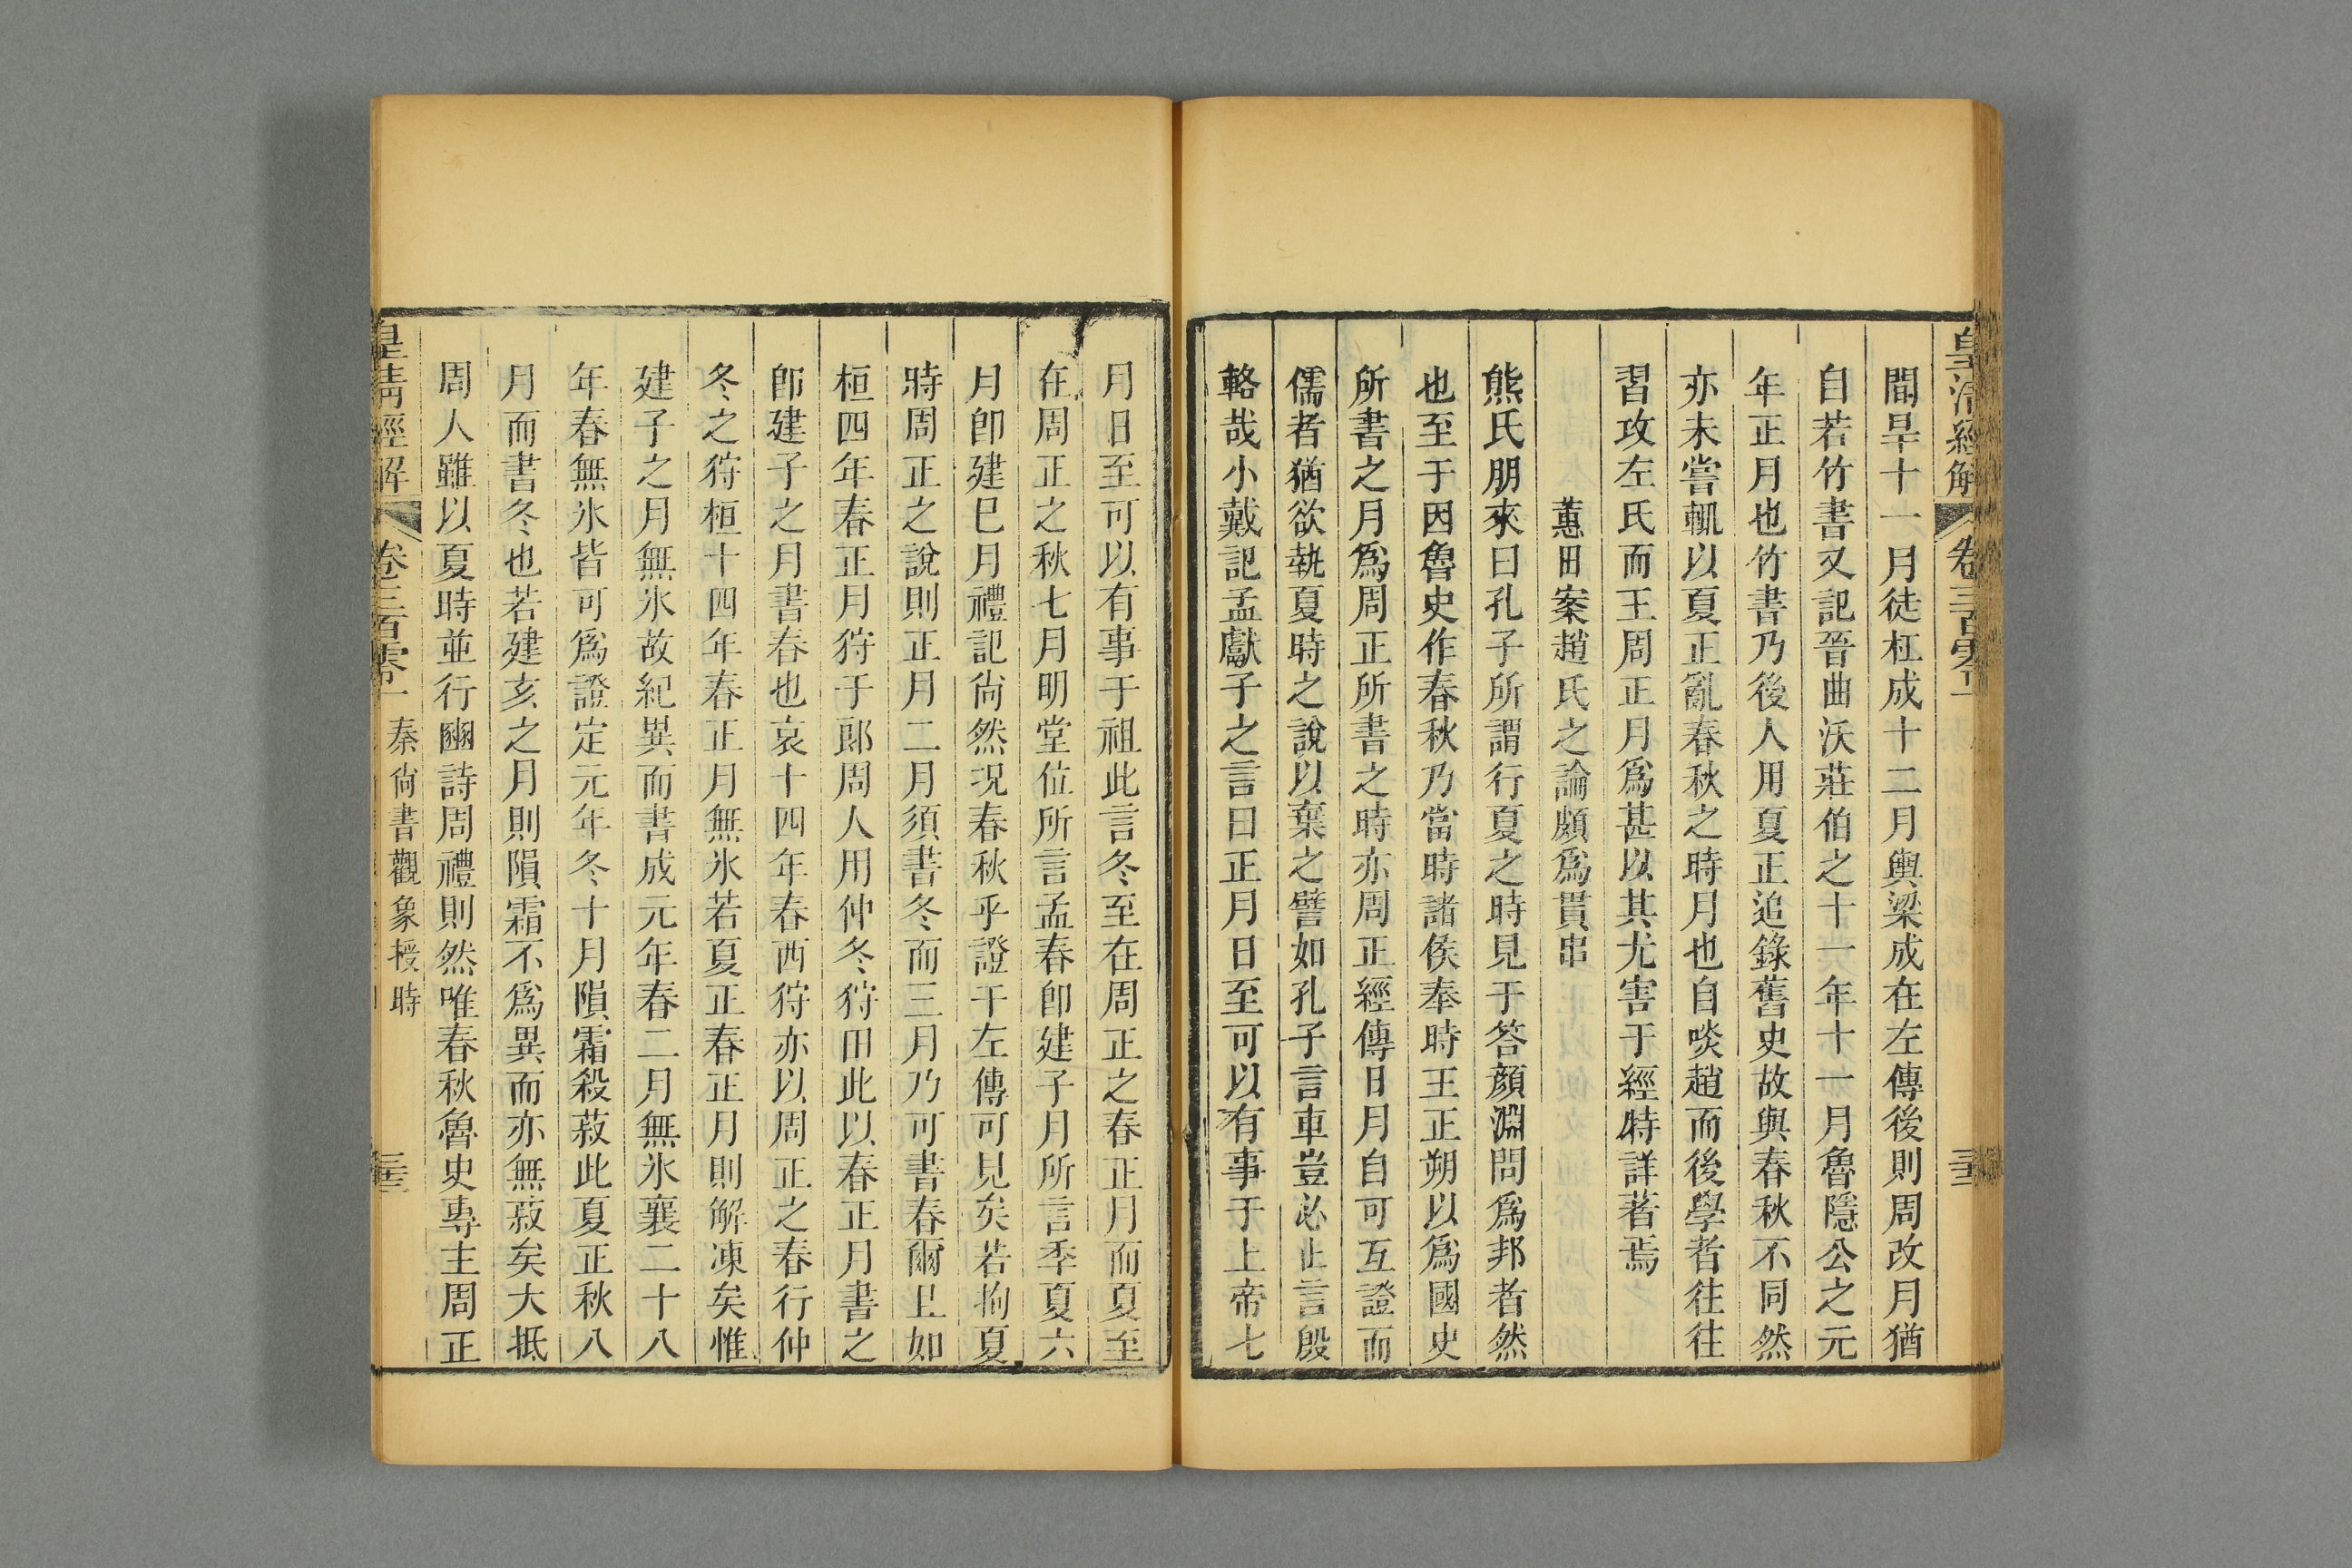 皇清經解 卷三百零一 三十三
閒旱十一月徒杠成十二月輿梁成在左傳後則周改月猶
自若竹書又記晉曲沃莊伯之十一年十一月魯隱公之元
年正月也竹書乃後人用夏正追錄舊史故與春秋不同然
亦未嘗輒以夏正亂春秋之時月也自啖趙而後學者往往
習攻左氏而王周正月爲甚以其尤害于經特詳著焉
蕙田案趙氏之論頗爲貫串
熊氏朋來曰孔子所謂行夏之時見于答顏淵問爲邦者然
也至于因魯史作春秋乃當時諸侯奉時王正朔以爲國史
所書之月爲周正所書之時亦周正經傳日月自可互證而
儒者猶欲執夏時之說以棄之譬如孔子言車豈必止言殷
輅哉小戴記孟獻子之言曰正月日至可以有事于上帝七
月日至可以有事于祖此言冬至在周正之春正月而夏至
在周正之秋七月明堂位所言孟春卽建子月所言季夏六
月卽建巳月禮記尙然況春秋乎證于左傳可見矣若拘夏
時周正之說則正月二月須書冬而三月乃可書春爾且如
桓四年春正月狩于郞周人用仲冬狩田此以春正月書之
卽建子之月書春也哀十四年春西狩亦以周正之春行仲
冬之狩桓十四年春正月無氷若夏正春正月則解凍矣惟
建子之月無氷故紀異而書成元年春二月無氷襄二十八
年春無氷皆可爲證定元年冬十月隕霜殺菽此夏正秋八
月而書冬也若建亥之月則隕霜不爲異而亦無菽矣大抵
周人雖以夏時並行豳詩周禮則然唯春秋魯史專主周正
皇清經解 卷三百零一 秦尙書觀象授時 三十三